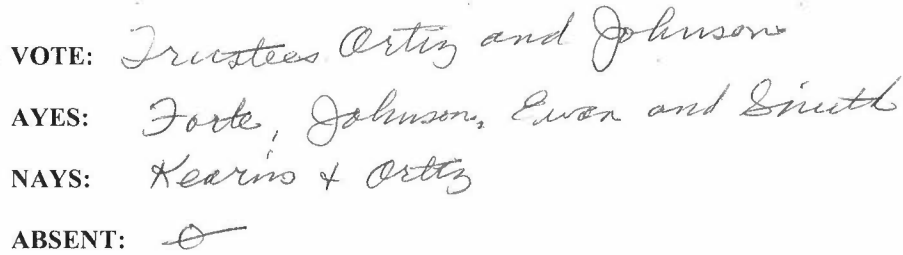 VOTE: Trustees Ortiz and Johnson
AYES: Forte, Johnson, Ewan and Smith
NAYS: Kearns & Ortiz
ABSENT: 0